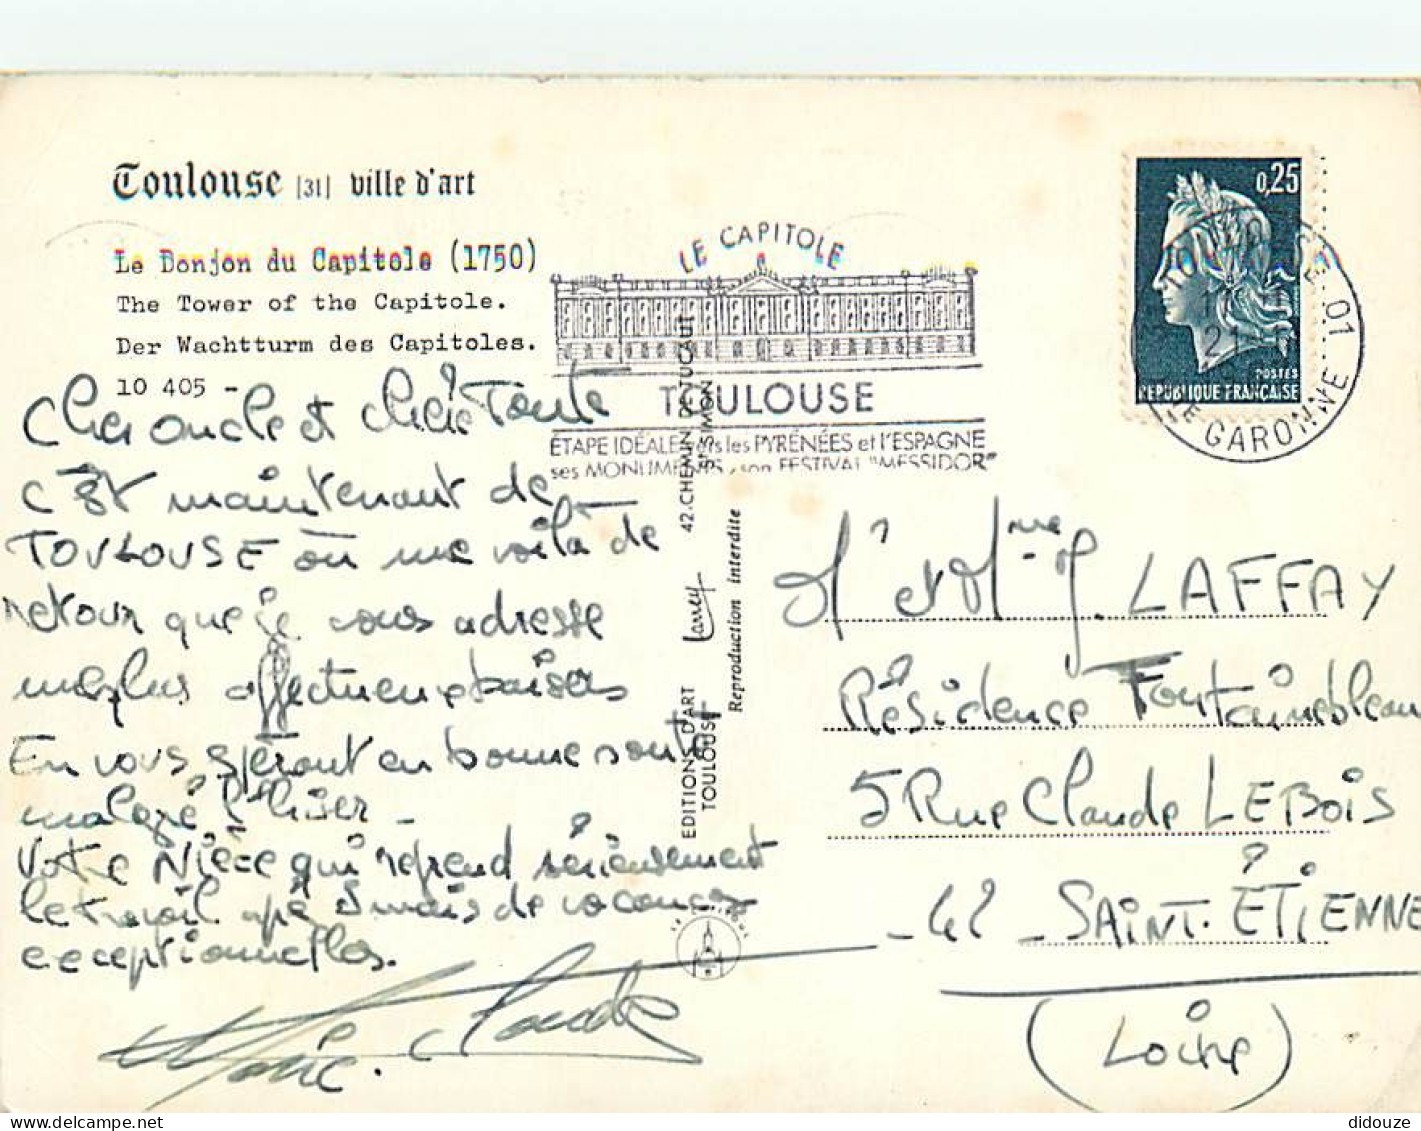 Toulouse [31] ville d'art
Le Donjon du Capitole (1750)
The Tower of the Capitole.
Der Wachtturm des Capitoles.
10 405 -
Cher oncle et chère Tante
C'est maintenant de
TOULOUSE où me voilà de
retour que je vous adresse
mes plus affectueux baisers
En vous espérant en bonne santé
malgré l'hiver -
Votre Nièce qui reprend sérieusement
le travail après 5 mois de vacances
exceptionnelles.
Marie Claude
LE CAPITOLE
TOULOUSE
ÉTAPE IDÉALE vers les PYRÉNÉES et l'ESPAGNE
ses MONUMENTS, son FESTIVAL "MESSIDOR"
EDITIONS D'ART Larrey 42.CHEMIN DE TUCAUT
TOULOUSE ST-SIMON
Reproduction interdite
0,25
POSTES
REPUBLIQUE FRANÇAISE
TOULOUSE 01
21
GARONNE
Mr et Mme J. LAFFAY
Résidence Fontainebleau
5 Rue Claude LEBOIS
- 42 - SAINT-ÉTIENNE
(Loire)
delcampe.net
didouze